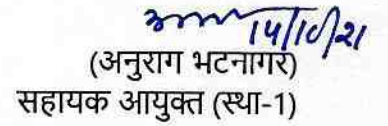 14/10/21
(अनुराग भटनागर)
सहायक आयुक्त (स्था-1)